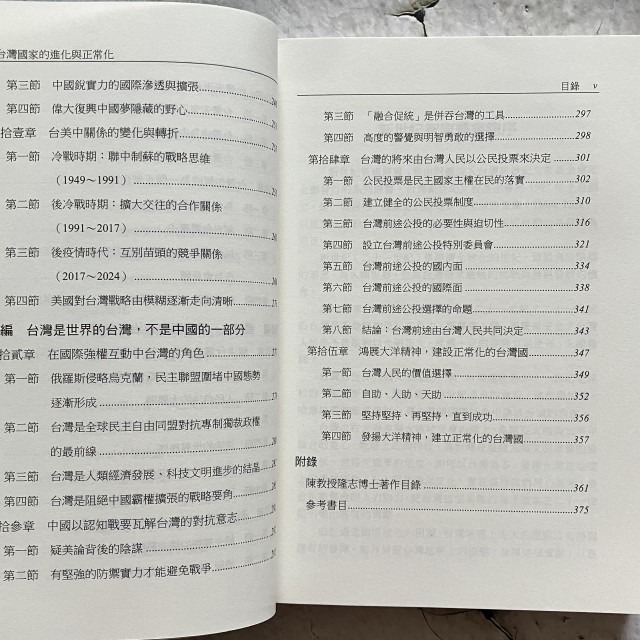 台灣國家的進化與正常化
第三節 中國銳實力的國際滲透與擴張
第四節 偉大復興中國夢隱藏的野心
拾壹章 台美中關係的變化與轉折
第一節 冷戰時期：聯中制蘇的戰略思維
（1949～1991）
第二節 後冷戰時期：擴大交往的合作關係
（1991～2017）
第三節 後疫情時代：互別苗頭的競爭關係
（2017～2024）
第四節 美國對台灣戰略由模糊逐漸走向清晰
編 台灣是世界的台灣，不是中國的一部分
拾貳章 在國際強權互動中台灣的角色
第一節 俄羅斯侵略烏克蘭，民主聯盟圍堵中國態勢
逐漸形成
第二節 台灣是全球民主自由同盟對抗專制獨裁政權
的最前線
第三節 台灣是人類經濟發展、科技文明進步的結晶
第四節 台灣是阻絕中國霸權擴張的戰略要角
拾參章 中國以認知戰要瓦解台灣的對抗意志
第一節 疑美論背後的陰謀
第二節 有堅強的防禦實力才能避免戰爭
目錄 v
第三節 「融合促統」是併吞台灣的工具 297
第四節 高度的警覺與明智勇敢的選擇 298
第拾肆章 台灣的將來由台灣人民以公民投票來決定 301
第一節 公民投票是民主國家主權在民的落實 302
第二節 建立健全的公民投票制度 310
第三節 台灣前途公投的必要性與迫切性 316
第四節 設立台灣前途公投特別委員會 321
第五節 台灣前途公投的國內面 334
第六節 台灣前途公投的國際面 338
第七節 台灣前途公投選擇的命題 341
第八節 結論：台灣前途由台灣人民共同決定 343
第拾伍章 鴻展大洋精神，建設正常化的台灣國 347
第一節 台灣人民的價值選擇 349
第二節 自助、人助、天助 352
第三節 堅持堅持、再堅持，直到成功 356
第四節 發揚大洋精神，建立正常化的台灣國 357
附錄
陳教授隆志博士著作目錄 361
參考書目 375